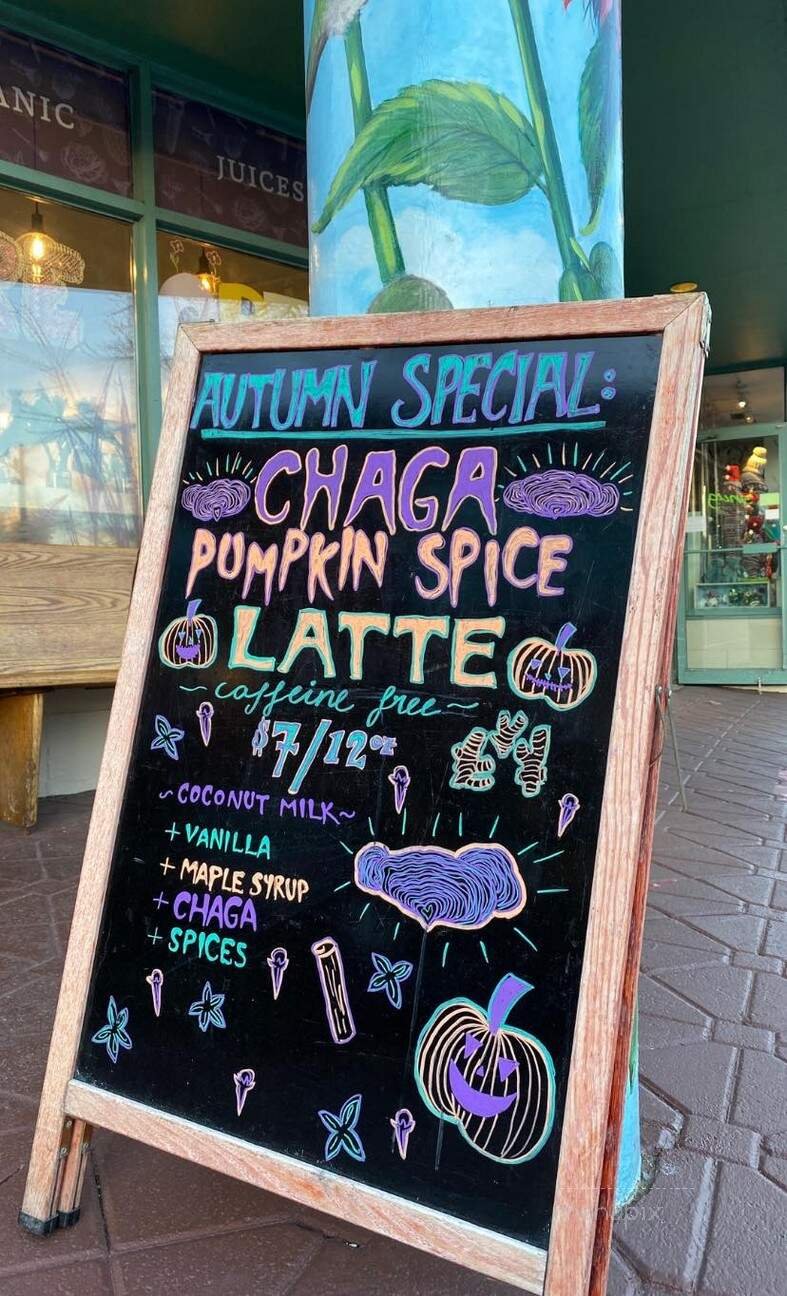 ANIC
JUICES
AUTUMN SPECIAL:
CHAGA
PUMPKIN SPICE
LATTE
~caffeine free~
$7/12oz
~COCONUT MILK~
+VANILLA
+ MAPLE SYRUP
+ CHAGA
+ SPICES